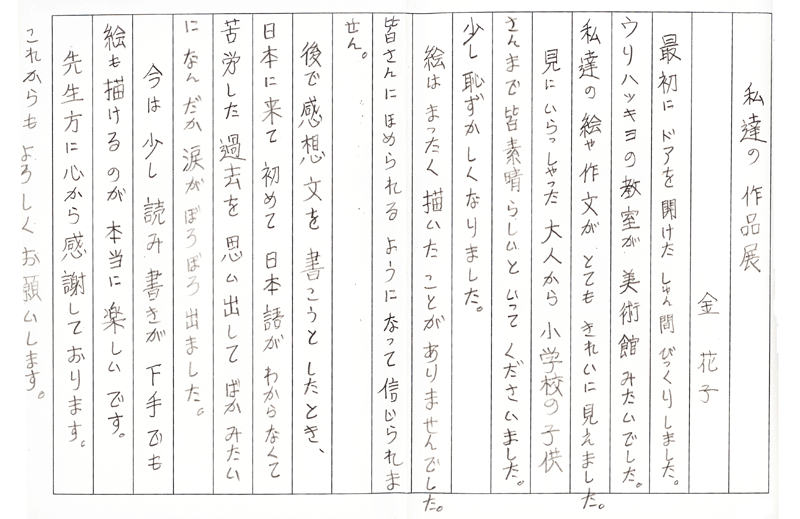 私達の作品展
金花子
最初にドアを開けたしゅん間びっくりしました。
ウリハッキョの教室が美術館みたいでした。
私達の絵や作文がとてもきれいに見えました。
見にいらっしゃった大人から小学校の子供
さんまで皆素晴らしいといってくださいました。
少し恥ずかしくなりました。
絵はまったく描いたことがありませんでした。
皆さんにほめられるようになって信じられま
せん。
後で感想文を書こうとしたとき、
日本に来て初めて日本語がわからなくて
苦労した過去を思い出してばかみたい
になんだか涙がぼろぼろ出ました。
今は少し読み書きが下手でも
絵も描けるのが本当に楽しいです。
先生方に心から感謝しております。
これからもよろしくお願いします。